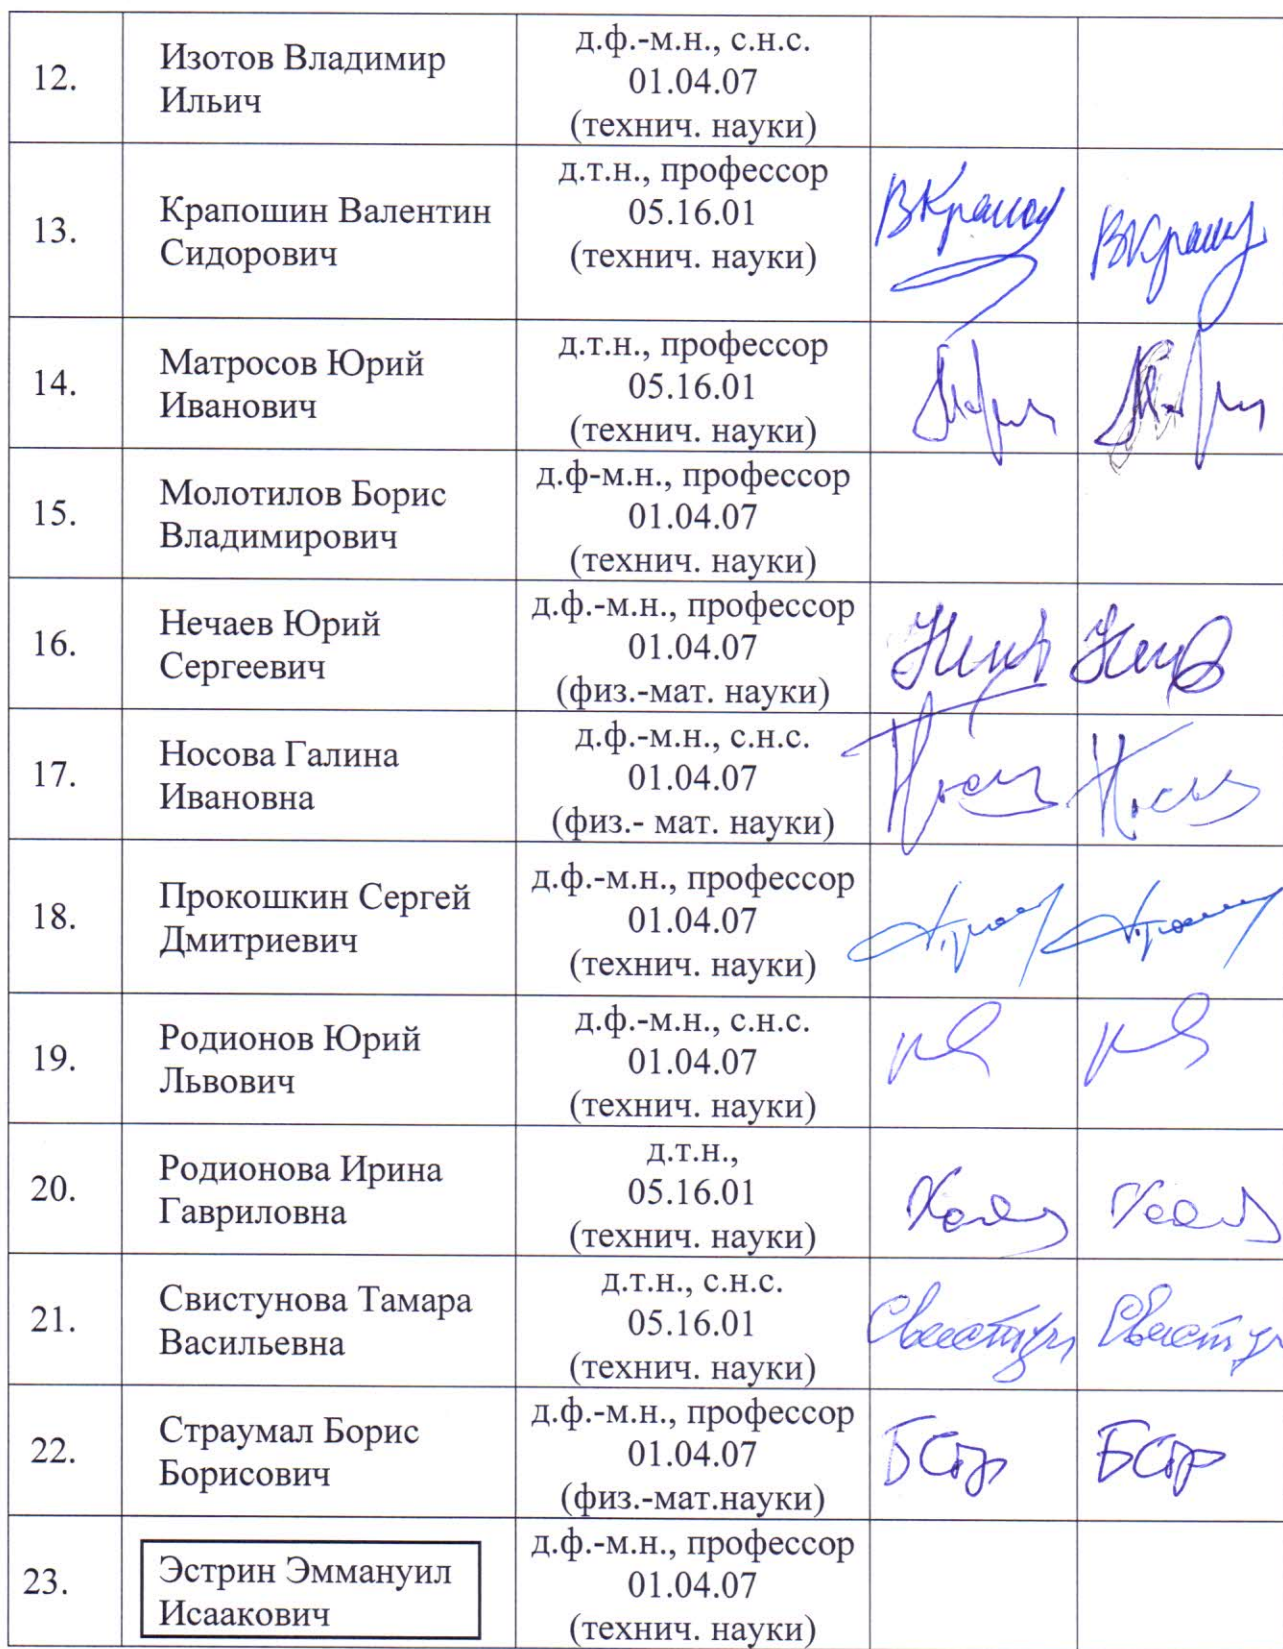 12.
Изотов Владимир
Ильич
д.ф.-м.н., с.н.с.
01.04.07
(технич. науки)
13.
Крапошин Валентин
Сидорович
д.т.н., профессор
05.16.01
(технич. науки)
14.
Матросов Юрий
Иванович
д.т.н., профессор
05.16.01
(технич. науки)
15.
Молотилов Борис
Владимирович
д.ф-м.н., профессор
01.04.07
(технич. науки)
16.
Нечаев Юрий
Сергеевич
д.ф.-м.н., профессор
01.04.07
(физ.-мат. науки)
17.
Носова Галина
Ивановна
д.ф.-м.н., с.н.с.
01.04.07
(физ.- мат. науки)
18.
Прокошкин Сергей
Дмитриевич
д.ф.-м.н., профессор
01.04.07
(технич. науки)
19.
Родионов Юрий
Львович
д.ф.-м.н., с.н.с.
01.04.07
(технич. науки)
20.
Родионова Ирина
Гавриловна
д.т.н.,
05.16.01
(технич. науки)
21.
Свистунова Тамара
Васильевна
д.т.н., с.н.с.
05.16.01
(технич. науки)
22.
Страумал Борис
Борисович
д.ф.-м.н., профессор
01.04.07
(физ.-мат.науки)
БСтр
БСтр
23.
Эстрин Эммануил
Исаакович
д.ф.-м.н., профессор
01.04.07
(технич. науки)